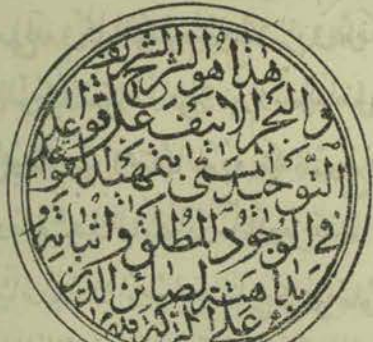 هذا هو الشرح
والبحر الانيف على قواعد
التوحيد المسمى بتمهيد القواعد
في الوجود المطلق واثباته و
بداهته لصائن الدين
على